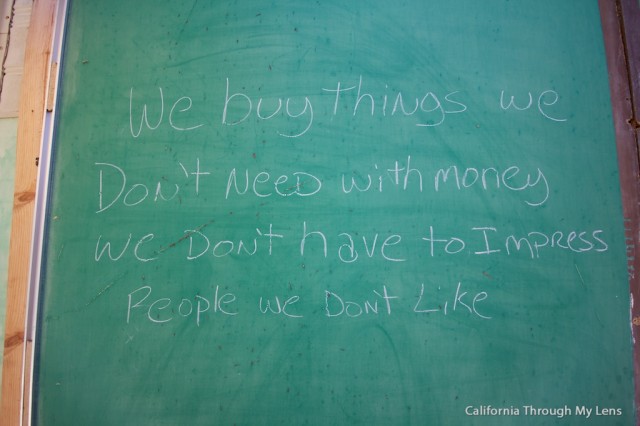 We buy things we
Don't Need with money
we Don't have to Impress
People we Don't Like
California Through My Lens